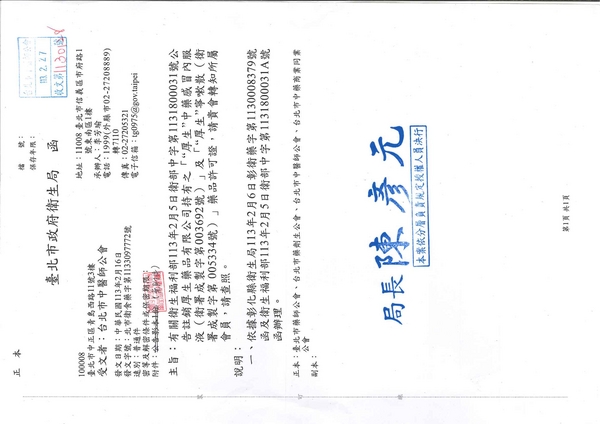 正本
檔　號：
保存年限：
臺北市政府衛生局　函
地址：11008 臺北市信義區市府路1號東南區1樓
承辦人：李芳瑜
電話：1999(外縣市02-27208889)轉7110
傳真：02-27205321
電子信箱：tg0975@gov.taipei
100008
臺北市中正區青島西路11號3樓
受文者：台北市中醫師公會
發文日期：中華民國113年2月16日
發文字號：北市衛食藥字第1133097772號
速別：普通件
密等及解密條件或保密期限：
附件：
主旨：有關衛生福利部113年2月5日衛部中字第1131800031號公
告註銷厚生藥品有限公司持有之「"厚生"中藥感冒內服
液（衛署成製字第003692號）」及「"厚生"寧嗽散（衛
署成製字第005334號）」藥品許可證，請貴會轉知所屬
會員，請查照。
說明：
一、依據彰化縣衛生局113年2月6日彰衛藥字第1130008379號
函及衛生福利部113年2月5日衛部中字第1131800031A號
函辦理。
正本：臺北市藥師公會、台北市中醫師公會、台北市中藥商業同業
公會
副本：
局長陳彥元
本案依分層負責規定授權人員決行
第1頁 共1頁
113. 2. 27
收文第